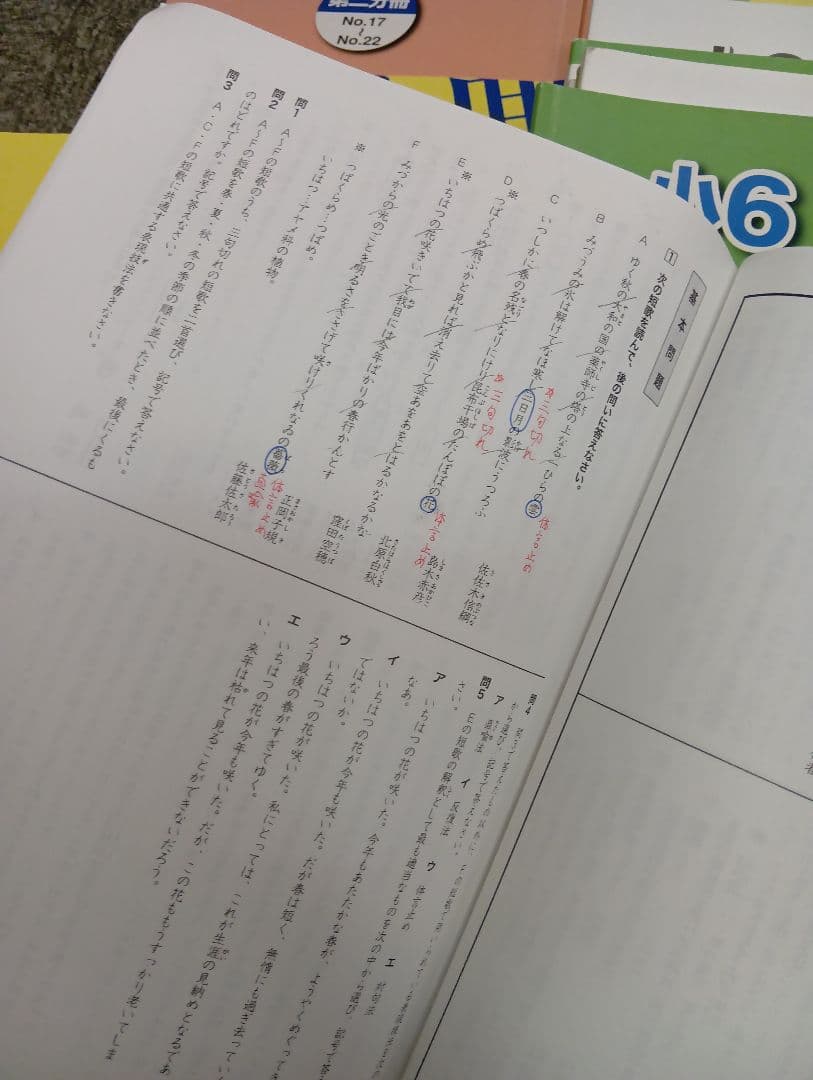 第二分冊
No.17
~
No.22
小6
基本問題
1 次の短歌を読んで、後の問いに答えなさい。
A ゆく秋の大和の国の薬師寺の塔の上なる一ひらの雲 体言止め 佐佐木信綱
B みづうみの氷は解けてなほ寒し三日月の影波にうつろふ 三句切れ 島木赤彦
C いつしかに春の名残となりにけり昆布干場のたんぽぽの花 三句切れ 体言止め 北原白秋
D ※つばくらめ飛ぶかと見れば消え去りて空あをあをとはるかなるかな 窪田空穂
E ※いちはつの花咲きいでて我目には今年ばかりの春行かんとす 正岡子規
F みづからの光のごとき明るさをささげて咲けりくれなゐの薔薇 体言止め 直喩 佐藤佐太郎
※ つばくらめ…つばめ。
いちはつ…アヤメ科の植物。
問1 A~Fの短歌のうち、三句切れの短歌を二首選び、記号で答えなさい。
問2 A~Fの短歌を春・夏・秋・冬の季節の順に並べたとき、最後にくるも
のはどれですか。記号で答えなさい。
問3 A・C・Fの短歌に共通する表現技法を書きなさい。
問4
から選び、記号で答えなさい。
ア 直喩法 イ 反復法 ウ 体言止め エ 対句法
問5 Eの短歌の解釈として最も適当なものを次の中から選び、記号で答
さい。
ア いちはつの花が咲いた。今年もあたたかな春が、ようやくめぐってき
なあ。
イ いちはつの花が咲いた。だが春は短く、無情にも過ぎ去ってい
ではないか。
ウ いちはつの花が今年も咲いた。私にとっては、これが生涯の見納めとなるであ
ろう最後の春がすぎてゆく。
エ いちはつの花が今年も咲いた。だが、この花ももうすっかり老いてしま
い、来年は枯れて見ることができないだろう。